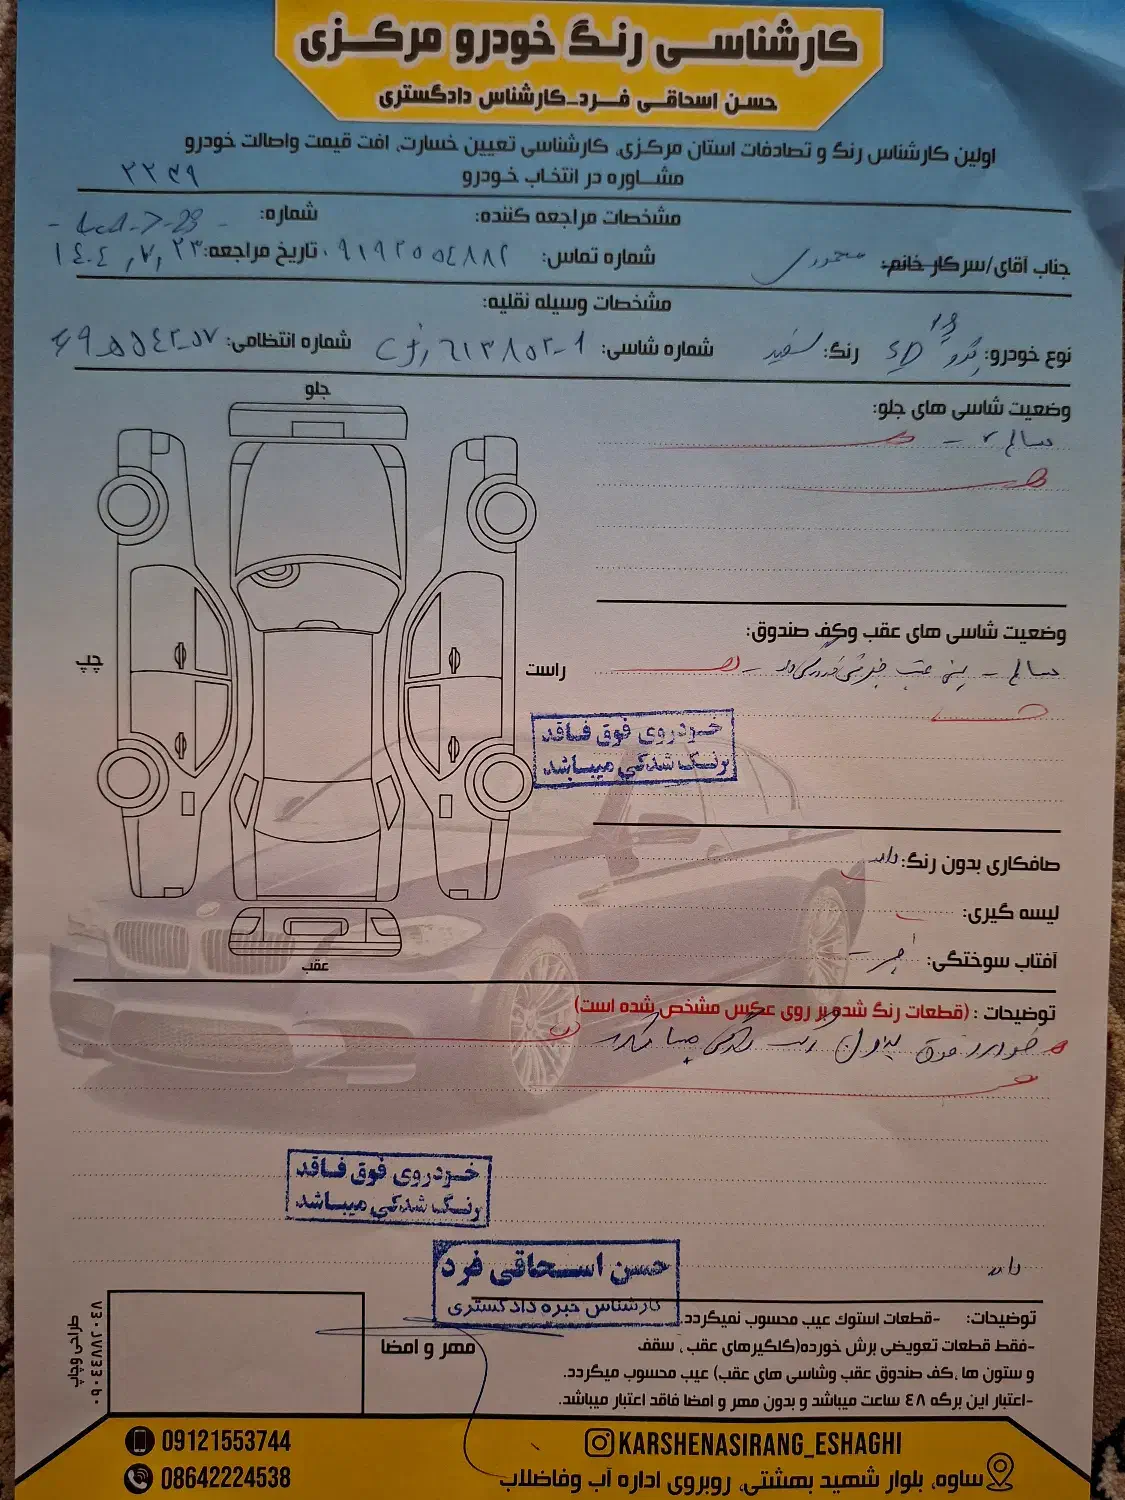 کارشناسی رنگ خودرو مرکزی
حسن اسحاقی فرد-کارشناس دادگستری
اولین کارشناس رنگ و تصادفات استان مرکزی، کارشناسی تعیین خسارت، افت قیمت واصالت خودرو
مشاوره در انتخاب خودرو
۲۲۴۹
مشخصات مراجعه کننده:
شماره:
جناب آقای/سرکار خانم:
شماره تماس: ۰۹۱۹۲۵۵۴۸۸۲
تاریخ مراجعه: ۱۴۰۴,۷,۲۳
مشخصات وسیله نقلیه:
نوع خودرو: SD
رنگ: سفید
شماره شاسی:
شماره انتظامی:
جلو
چپ
راست
عقب
وضعیت شاسی های جلو:
سالم
وضعیت شاسی های عقب وکف صندوق:
سالم -
خودروی فوق فاقد
رنگ شدگی میباشد
صافکاری بدون رنگ: دارد
لیسه گیری:
آفتاب سوختگی:
توضیحات : (قطعات رنگ شده بر روی عکس مشخص شده است)
خودرو فوق بدون رنگ شدگی میباشد
خودروی فوق فاقد
رنگ شدگی میباشد
حسن اسحاقی فرد
کارشناس خبره دادگستری
دارد
توضیحات: -قطعات استوک عیب محسوب نمیگردد.
-فقط قطعات تعویضی برش خورده(گلگیرهای عقب ، سقف
و ستون ها ،کف صندوق عقب وشاسی های عقب) عیب محسوب میگردد.
-اعتبار این برگه ۴۸ ساعت میباشد و بدون مهر و امضا فاقد اعتبار میباشد.
مهر و امضا
طراحی وچاپ
۰۹۰۴۴۸۸۲۰۴۸
09121553744
08642224538
KARSHENASIRANG_ESHAGHI
ساوه، بلوار شهید بهشتی، روبروی اداره آب وفاضلاب